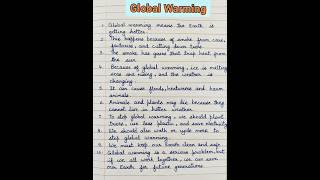 Global Warming
1. Global warming means the Earth is
getting hotter.
2. This happens because of smoke from cars,
factories, and cutting down trees.
3. The smoke has gases that trap heat from
the sun.
4. Because of global warming, ice is melting
seas are rising, and the weather is
changing.
5. It can cause floods, heatwaves and harm
animals.
6. Animals and plants may die because they
cannot live in hotter weather.
7. To stop global warming, we should plant
trees, use less plastic, and save electricity.
8. We should also walk or cycle more to
stop global warming.
9. We must keep our Earth clean and safe.
10. Global warming is a serious problem, but
if we all work together, we can save
our Earth for future generations.